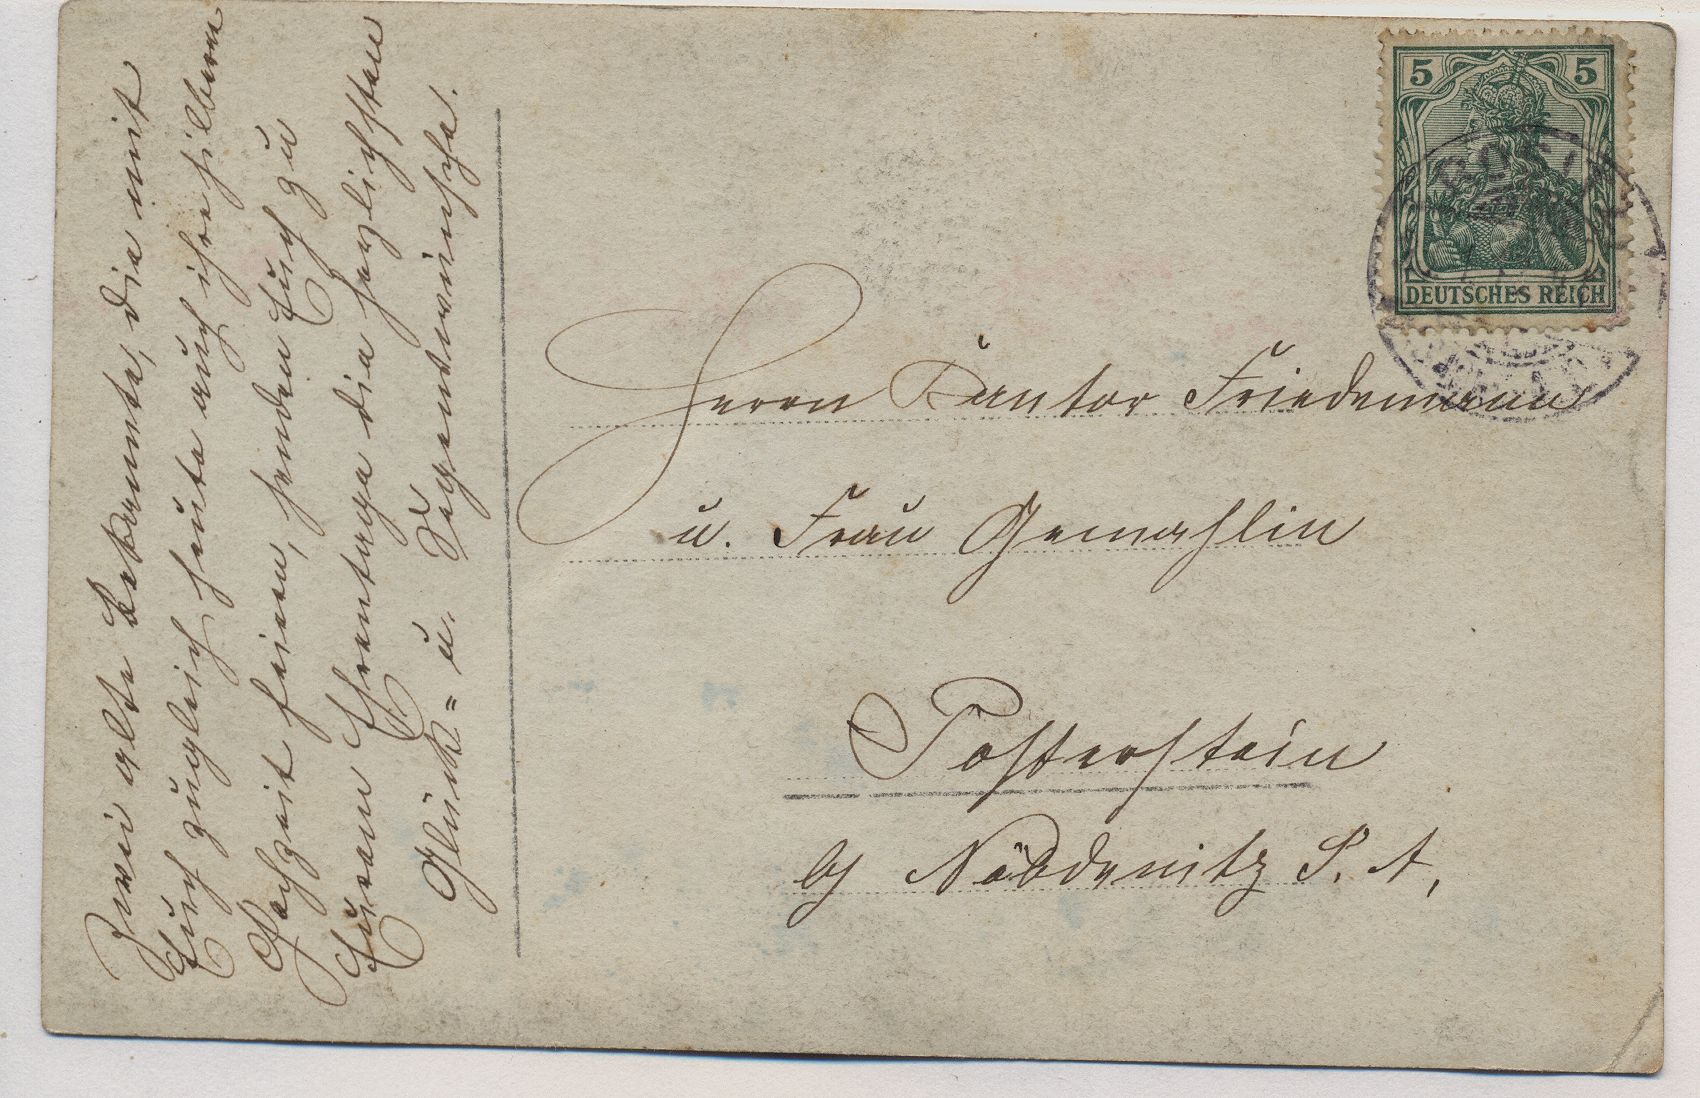 Zwei alte Bekannte, die mit
Euch zugleich heute auch ihre silberne
Hochzeit feiern, senden Euch zu
Eurem Ehrentage die herzlichsten
Glück= u. Segenswünsche.
5 5
DEUTSCHES REICH
Herrn Kantor Friedemann
u. Frau Gemahlin
Posterstein
b/ Nöbdenitz S. A.